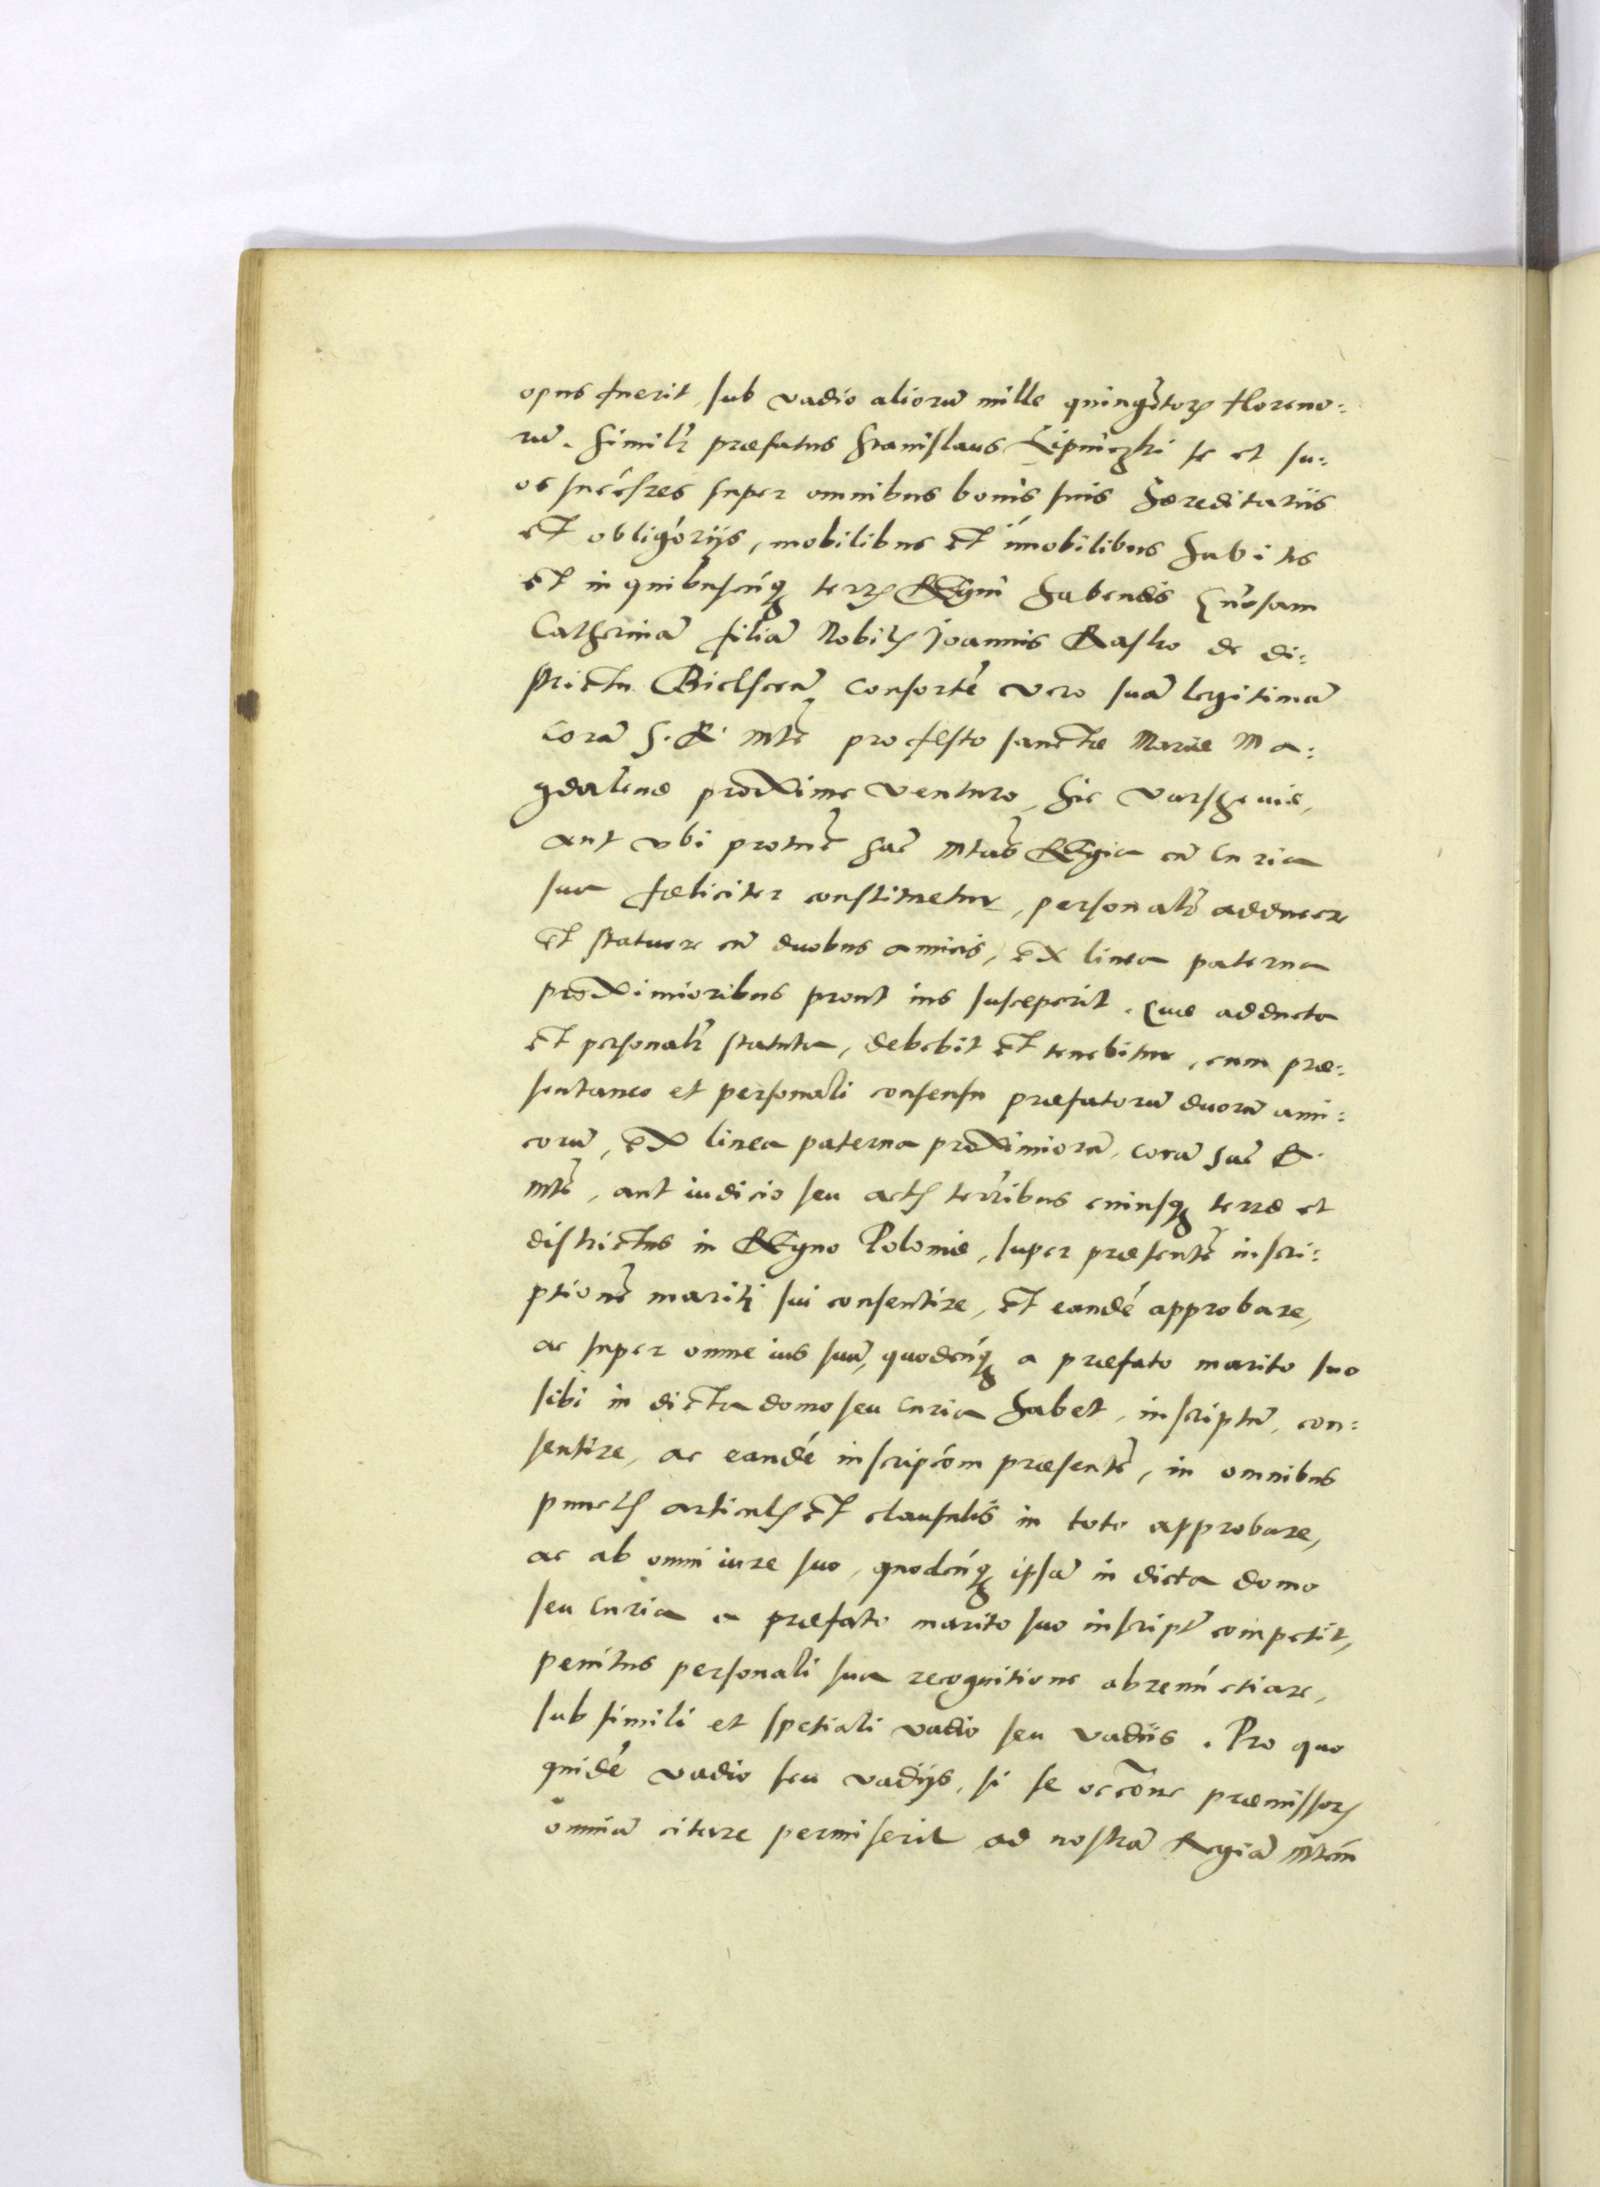 opus fuerit, sub vadio aliorū mille quingētorꝫ floreno:
rū. Similr̄ præfatus Stanislaus Lipniczki se et su:
os succ̄sores super omnibus bonis suis hæreditariis
et obligōriis, mobilibus et īmobilibus habitis
et in quibuscūqꝫ terrꝫ Regni habendis Gn̄osam
Catherinā filiā Nobilꝫ Joannis Rasko de di:
strictu Bielscēn̄ consortē vero suā legitimā
corā S. R. Mtē pro festo sanctæ Mariæ Ma:
gdalenæ proxime venturo, hic Varsheviæ,
aut ubi protunc̄ Sac̄ Mtas̄ Regia cū curia
sua fæliciter constituetur, personalr̄ adducere
et statuere cū duobus amicis, ex linea paterna
proximioribus prout ius susceperit. Quæ adducta
et personalr̄ statuta, debebit et tenebitur, cum præ:
sentaneo et personali consensu præfatorū duorū ami:
corū, ex linea paterna proximiorū, corā Sac̄ R.
Mtē, aut iudicio seu actꝫ terr̄ribus cuiusqꝫ terræ et
districtus in Regno Poloniæ, super præsentē inscri:
ptionē mariti sui consentire, et eandē approbare,
ac super omne ius suū, quodcūqꝫ a præfato marito suo
sibi in dicta domo seu curia habet, inscriptū, con:
sentire, ac eandē inscripc̄om præsentē, in omnibus
punctꝫ articulꝫ et clausulis in toto approbare,
ac ab omni iure suo, quodcūqꝫ ipsā in dicta domo
seu curia a præfato marito suo inscript̄ competit,
penitus personali sua recognitione abrenūctiare,
sub simili et spetiali vadio seu vadiis. Pro quo
quidē vadio seu vadijs, si se occōne præmissorꝫ
omniū citare permiserit ad nostrā Regiā Mtēm